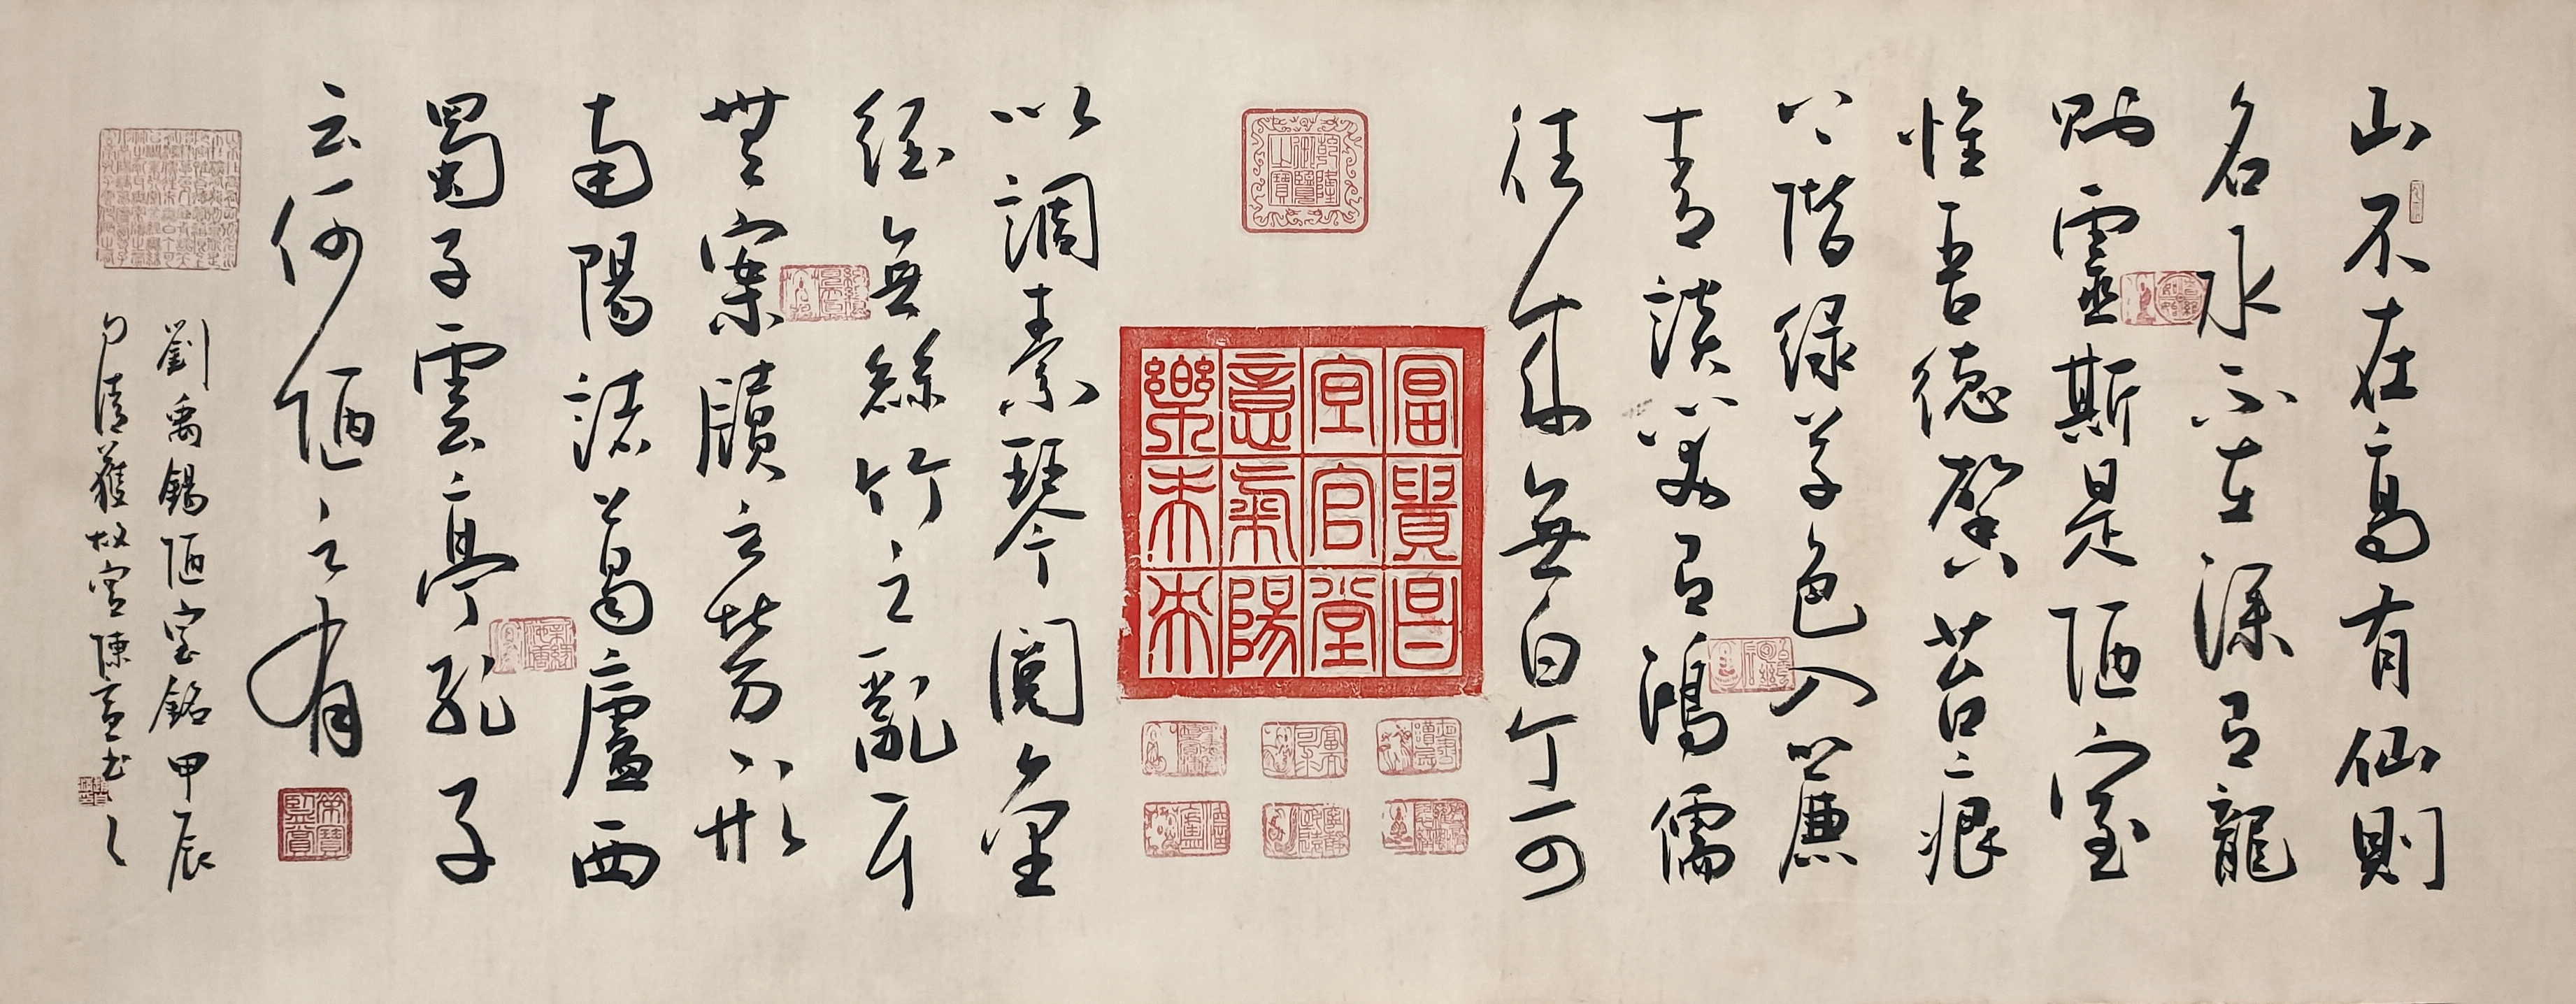 山不在高有仙則
名水不在深有龍
則靈斯是陋室
惟吾德馨苔痕
上階緑草色入簾
青談笑有鴻儒
往來無白丁可
乾隆御覽之寶
富貴昌
宜官堂
意氣陽
樂未央
以調素琴閱金
經無絲竹之亂耳
無案牘之勞形
南陽諸葛廬西
蜀子雲亭孔子
云何陋之有
劉禹錫陋室銘甲辰
故宮陳